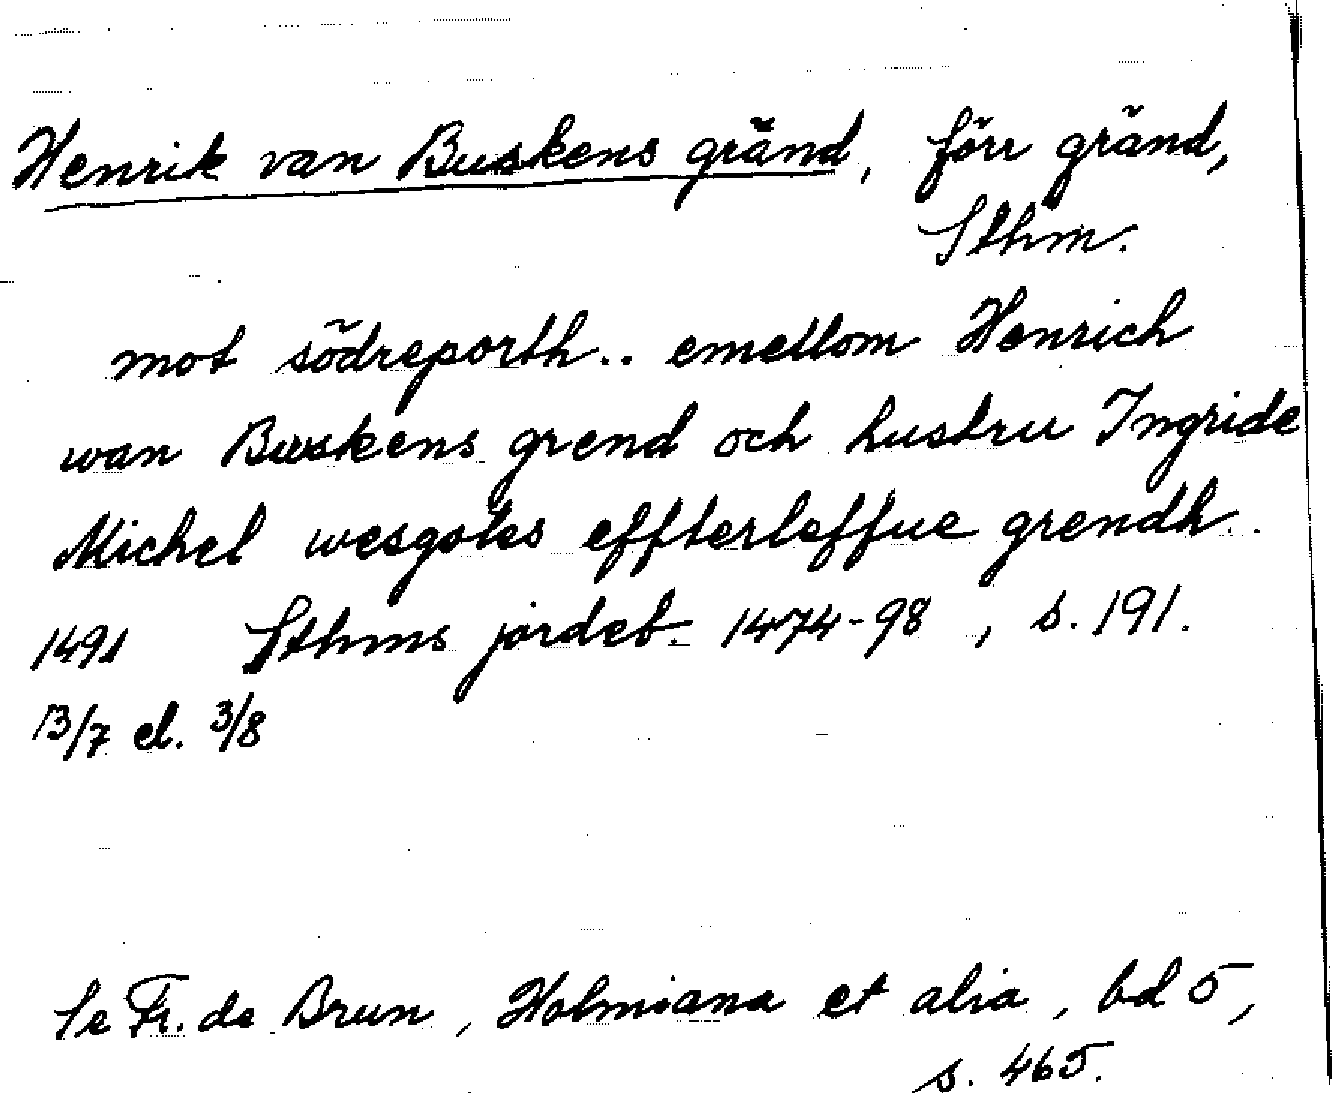 Henrik van Buskens gränd, förr gränd,
Sthm.
mot södreporth.. emellom Henrich
wan Buskens grend och hustru Ingride
Michel wesgotes effterleffue grendh..
1491 Sthms jordeb. 1474-98, s. 191.
13/7 el. 3/8
Se Fr. de Brun, Holmiana et alia, bd 5,
s. 465.